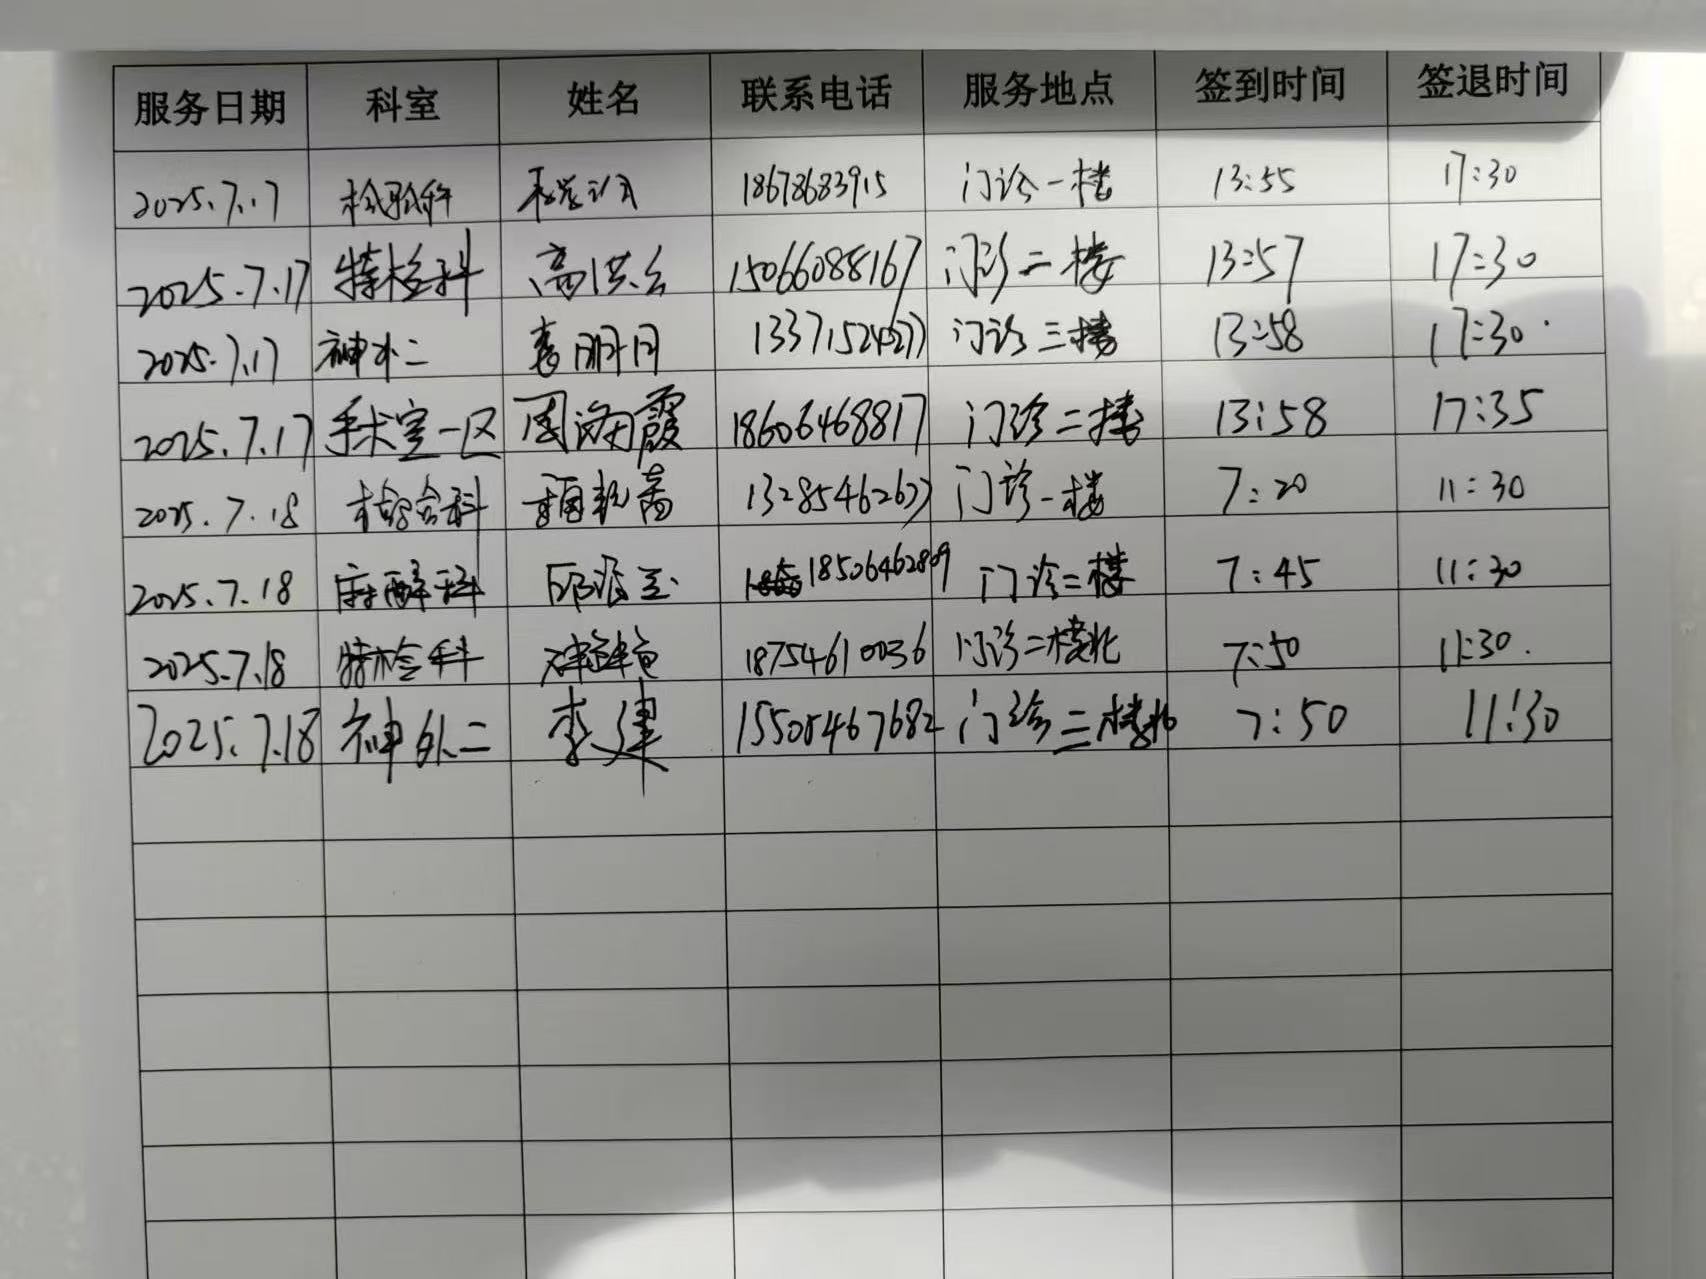 服务日期 科室 姓名 联系电话 服务地点 签到时间 签退时间
2025.7.17 检验科 18678683915 门诊一楼 13:55 17:30
2025.7.17 特检科 高洪 15066088167 门诊二楼 13:57 17:30
2025.7.17 神外二 李明月 门诊三楼 13:58 17:30
2025.7.17 手术室一区 周海霞 18606468817 门诊二楼 13:58 17:35
2025.7.18 检验科 13285462677 门诊一楼 7:20 11:30
2025.7.18 麻醉科 18506462809 门诊二楼 7:45 11:30
2025.7.18 特检科 18754610036 门诊二楼北 7:50 11:30
2025.7.18 神外二 李建 15505467682 门诊三楼北 7:50 11:30